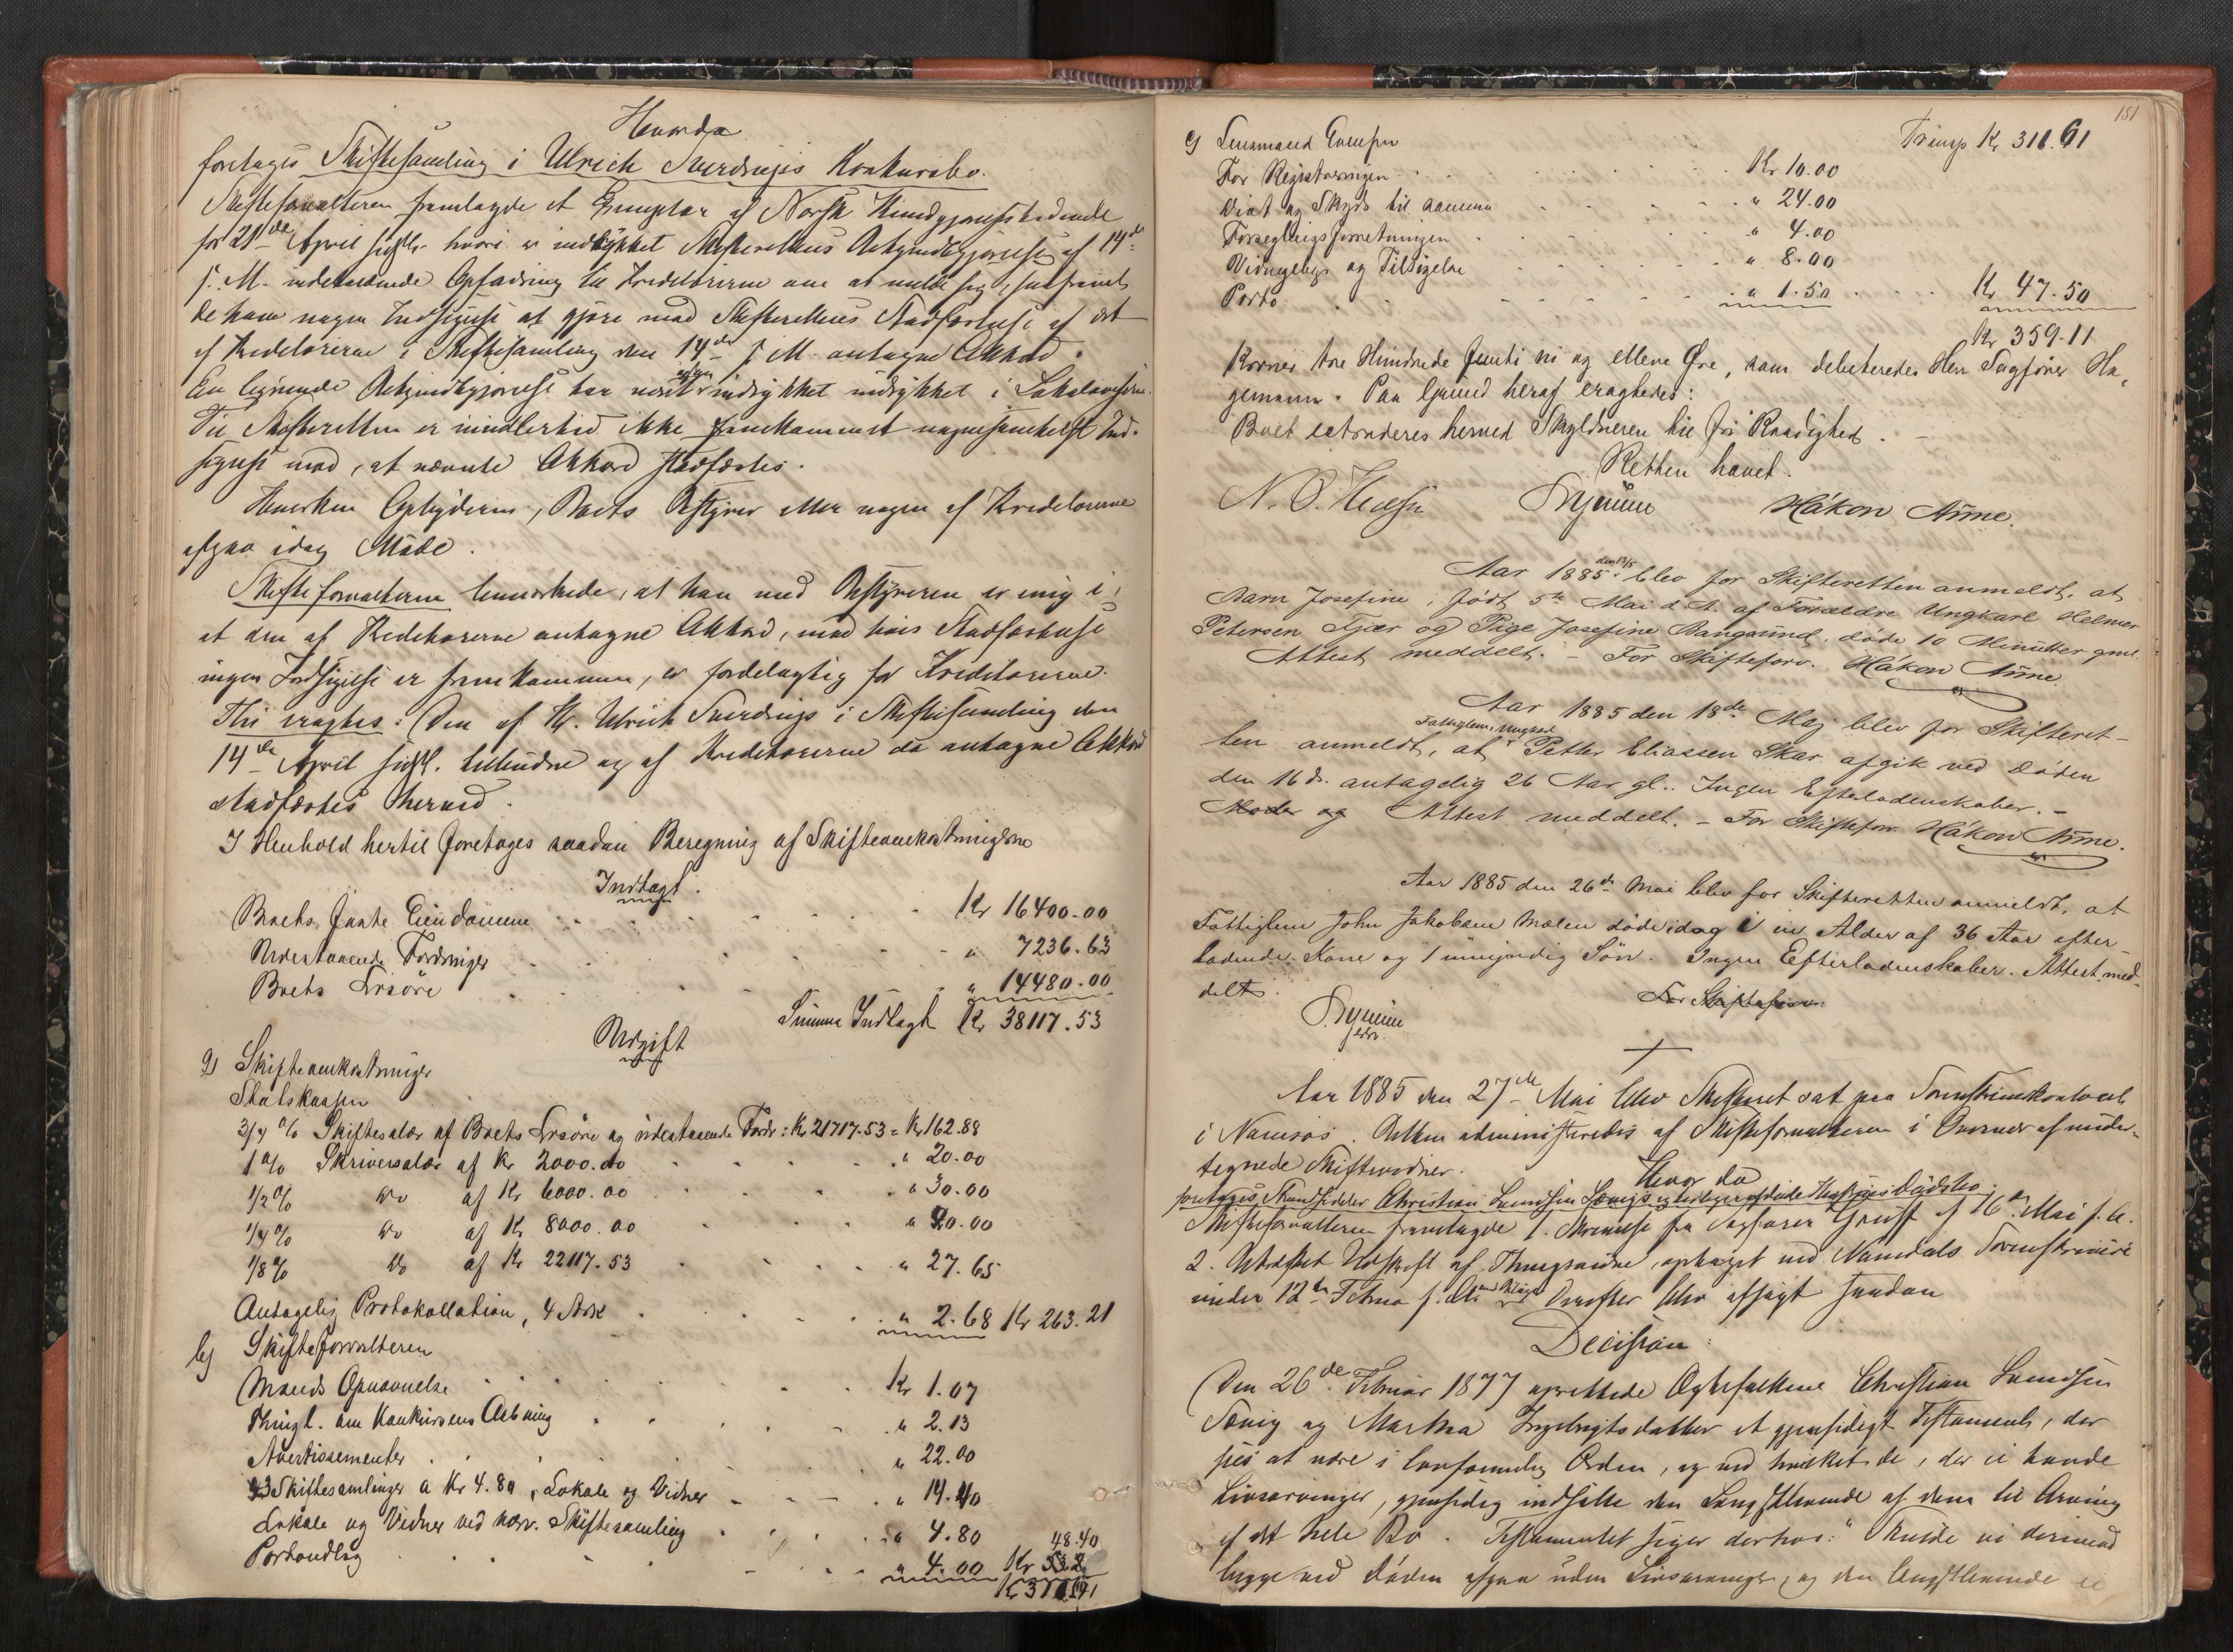 Hvorda
foretoges Skiftesamling i Ulrich Sverdrups Konkursbo.
Skifteforvalteren fremlagde et Exemplar af Norsk Kundgjørelsestidende
for 21de April sidstl. hvori er indrykket Skifterettens Bekjendtgjørelse af 14de
s. M. indeholdende Opfordring til Kreditorerne om at melde sig, saafremt
de have nogen Indsigelse at gjøre mod Skifterettens Stadfæstelse af det
af Kreditorerne i Skiftesamling den 14de s. M. antagne Akkord.
En lignende Bekjendtgjørelse har været indrykket indrykket i Lokalavisen.
Til Skifteretten er imidlertid ikke fremkommet nogensomhelst Ind-
sigelse mod, at nævnte Akkord stadfæstes.
Hverken Opbyderen, Boets Bestyrer eller nogen af Kreditorerne
afgav idag Møde.
Skifteforvalteren bemærkede, at han med Bestyreren er enig i,
at den af Kreditorerne antagne Akkord, mod hvis Stadfæstelse
ingen Indsigelse er fremkommen, er fordelagtig for Kreditorerne.
Thi eragtes: Den af Hr. Ulrich Sverdrup i Skiftesamling den
14de April sidstl. tilbudne og af Kreditorerne da antagne Akkord
stadfæstes herved.
I Henhold hertil foretoges saadan Beregning af Skifteomkostningerne
Indtægt.
Boets faste Eiendomme Kr 16400.00
Udestaaende Fordringer " 7236.63
Boets Løsøre " 14480.00
Summa Indtægt Kr 38117.53
Udgift
a) Skifteomkostninger
Statskassen
3/4 % Skiftesalær af Boets Løsøre og udestaaende Fordr: Kr 21717.53 = Kr 162.88
1 % Skriversalær af Kr 2000.00 " 20.00
1/2 % do af Kr 6000.00 " 30.00
1/4 % do af Kr 8000.00 " 20.00
1/8 % do af Kr 22117.53 " 27.65
Antagelig Protokollation, 4 Ark " 2.68 Kr 263.21
b) Skifteforvalteren
Mænds Opnævnelse Kr 1.07
Thingl. om Konkursens Aabning " 2.13
Avertissementer " 22.00
3 Skiftesamlinger a Kr 4.80, Lokale og Vidner " 14.40
Lokale og Vidner ved nærv. Skiftesamling " 4.80
48.40
Portoudlæg " 4.00 Kr
181
Transp Kr 311.61
c) Lensmand
For Registreringen Kr 10.00
Diæt og Skyds til samme " 24.00
Forseglingsforretningen " 4.00
Vidnegebyr og Tilsigelse " 8.00
Porto " 1.50 Kr 47.50
Kr 359.11
Kroner tre Hundrede femti ni og elleve Øre, som debiteredes Herr Sagfører Ha-
gemann. Paa Grund heraf eragtedes:
Boet extraderes herved Skyldneren til fri Raadighed.
Retten hævet.
Håkon Anne.
Aar 1885 den 13/5 blev for Skifteretten anmeldt, at
Barn Josefine, født 5te Mai d. A. af Forældre Ungkarl Helmer
Petersen Tjær og Pige Josefine Bangsund, døde 10 Minutter gml.
Attest meddelt. – For Skifteforv. Håkon Anne.
Aar 1885 den 18de Maj blev for Skifteret-
Fattiglem, Ungkarl
ten anmeldt, at Petter Eliassen Skar afgik ved Døden
den 16 ds. antagelig 26 Aar gl.. Ingen Efterladenskaber. –
Moder og Attest meddelt. – For Skifteforv. Håkon Anne.
Aar 1885 den 26de Mai blev for Skifteretten anmeldt, at
Fattiglem John Jakobsen Mælen døde idag i en Alder af 36 Aar efter-
ladende Kone og 1 umyndig Søn. Ingen Efterladenskaber. Attest med-
delt.
For Skifteforv.
Aar 1885 den 27de Mai blev Skifteret sat paa Sorenskriverkontoret
i Namsos. Retten administreredes af Skifteforvalteren i Overvær af under-
tegnede Skiftevidner.
Hvor da
foretoges Christian Lundsen Dødsbo.
Skifteforvalteren fremlagde 1. Skrivelse fra Sagfører af 16de Mai s. A.
2. Udskrift af Thingsvidne, optaget ved Namdals Sorenskriveri
under 12te Februar s. A. med Bilage Derefter blev afsagt saadan
Decision:
Den 26de Februar 1877 oprettede Ægtefolkene Christian Lundsen
og Martha Ingebrigtsdatter et gjensidigt Testament, der
sees at være i lovformelig Orden, og ved hvilket de, der ei havde
Livsarvinger, gjensidig indsatte den Længstlevende af dem til Arving
af det hele Bo. Testamentet siger derhos: "Skulde vi derimod
begge ved Døden afgaa uden Livsarvinger, og den Længstlevende ei